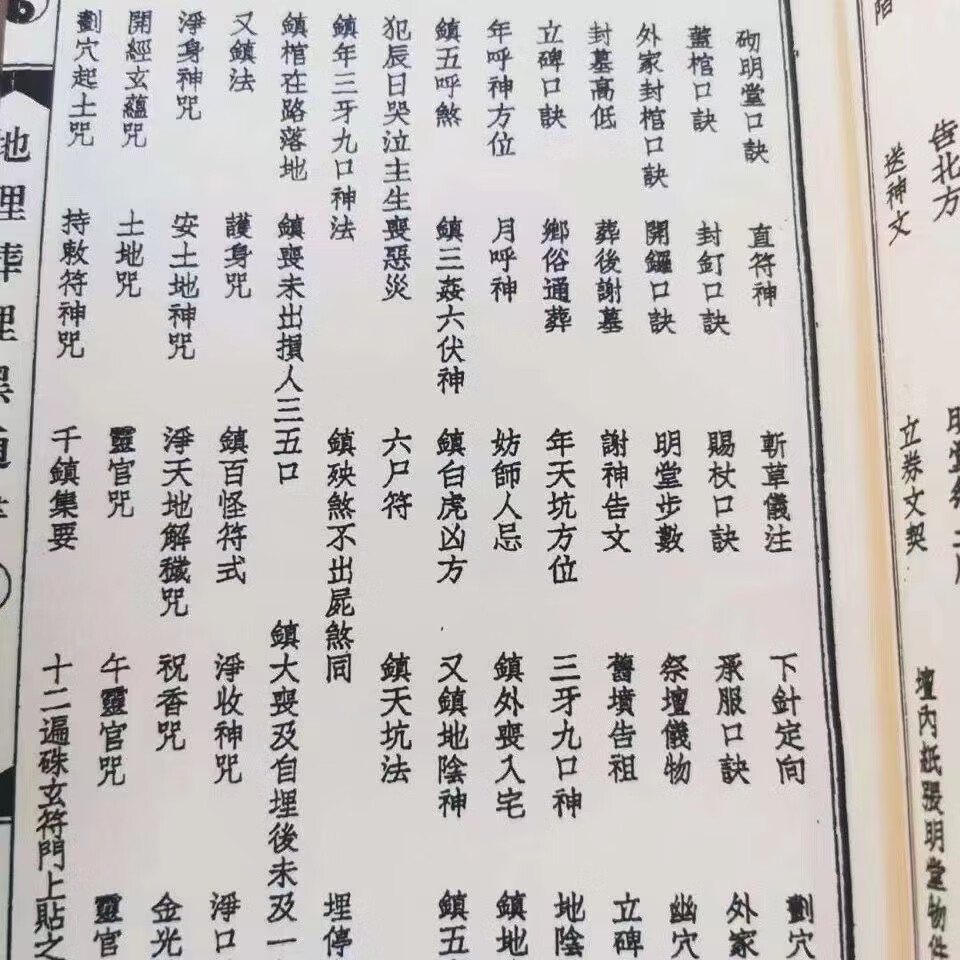 告北方
送神文
立券文契
壇內紙張明堂物件
砌明堂口訣　直符神　斬草儀注　下針定向　劃穴
蓋棺口訣　封釘口訣　賜杖口訣　承服口訣　外家
外家封棺口訣　開鑼口訣　明堂步數　祭壇儀物　幽穴
封墓高低　葬後謝墓　謝神告文　舊墳告祖　立碑
立碑口訣　鄉俗通葬　年天坑方位　三牙九口神　地陰
年呼神方位　月呼神　妨師人忌　鎮外喪入宅　鎮地
鎮五呼煞　鎮三姦六伏神　鎮白虎凶方　又鎮地陰神　鎮五
犯辰日哭泣主生喪惡災　六尸符　鎮天坑法
鎮年三牙九口神法　鎮殃煞不出屍煞同　埋停
鎮棺在路落地　鎮喪未出損人三五口　鎮大喪及自埋後未及一
又鎮法　護身咒　鎮百怪符式　淨收神咒　淨口
淨身神咒　安土地神咒　淨天地解穢咒　祝香咒　金光
開經玄蘊咒　土地咒　靈官咒　午靈官咒　靈官
劃穴起土咒　持敕符神咒　千鎮集要　十二遍硃玄符門上貼之
地理葬埋